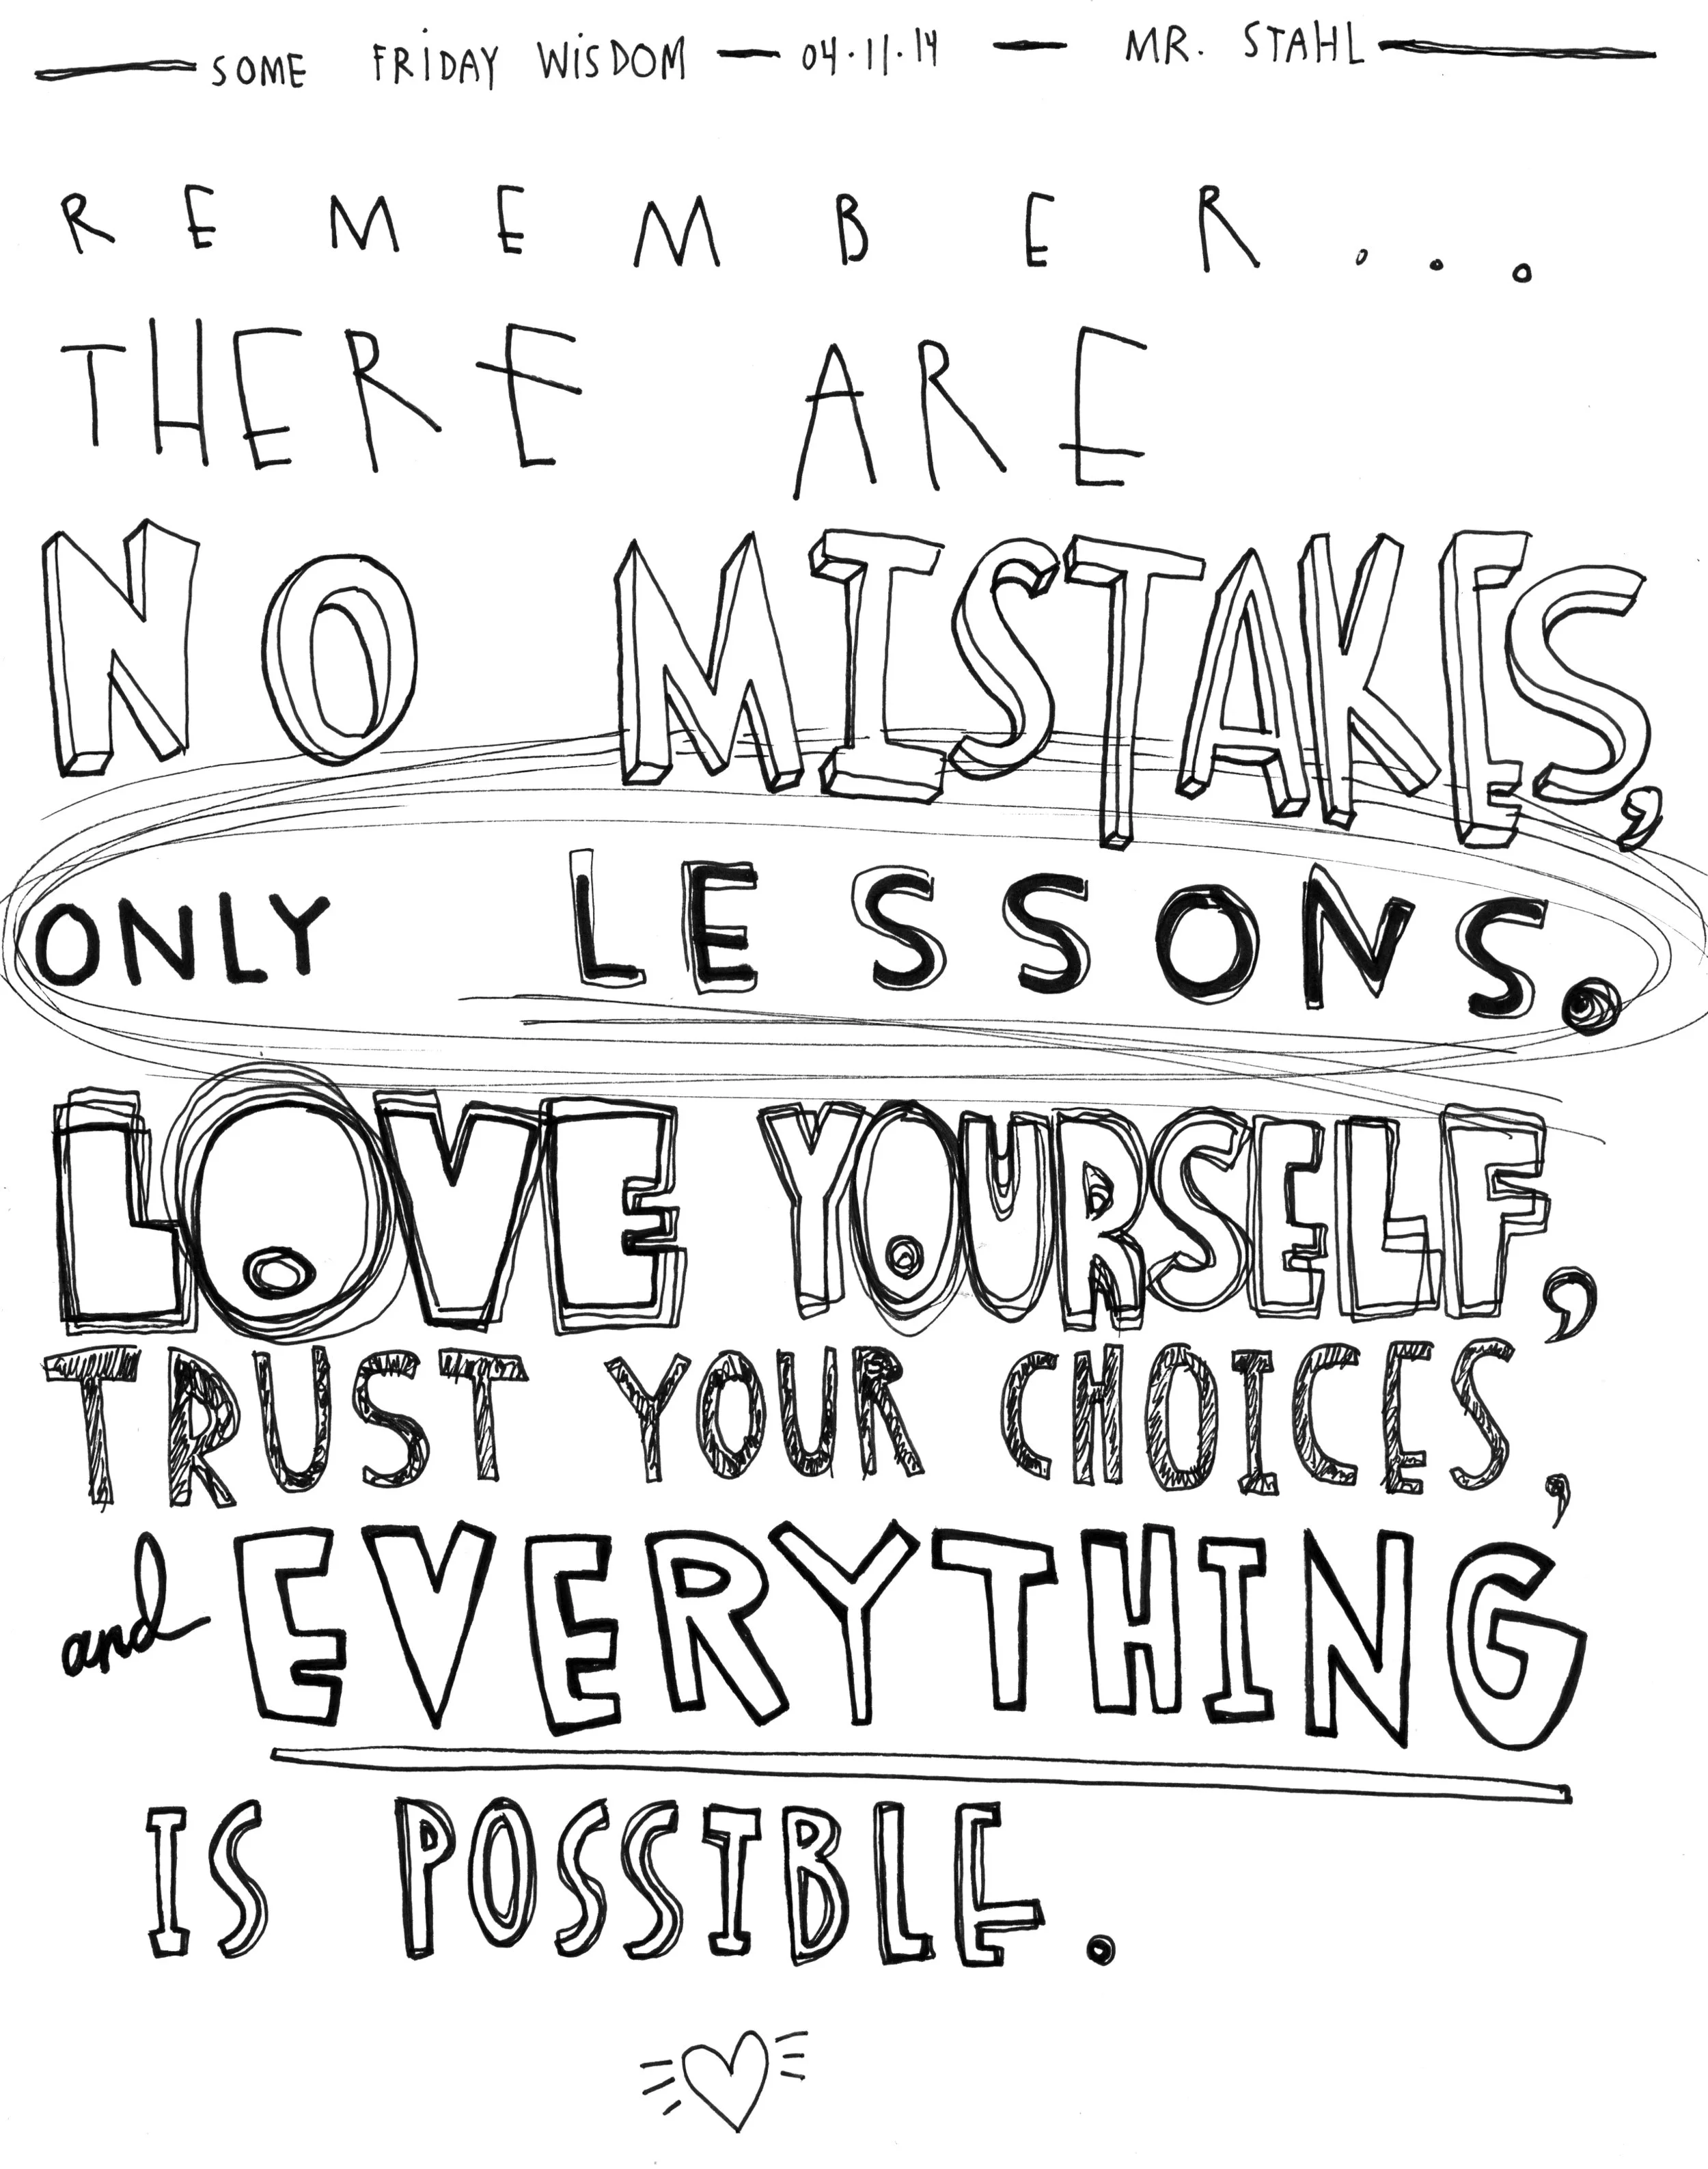 SOME FRiDAY WiSDOM — 04·11·14 — MR. STAHL
REMEMBER...
THERE ARE
NO MISTAKES,
ONLY LESSONS.
LOVE YOURSELF,
TRUST YOUR CHOICES,
and EVERYTHING
IS POSSIBLE.